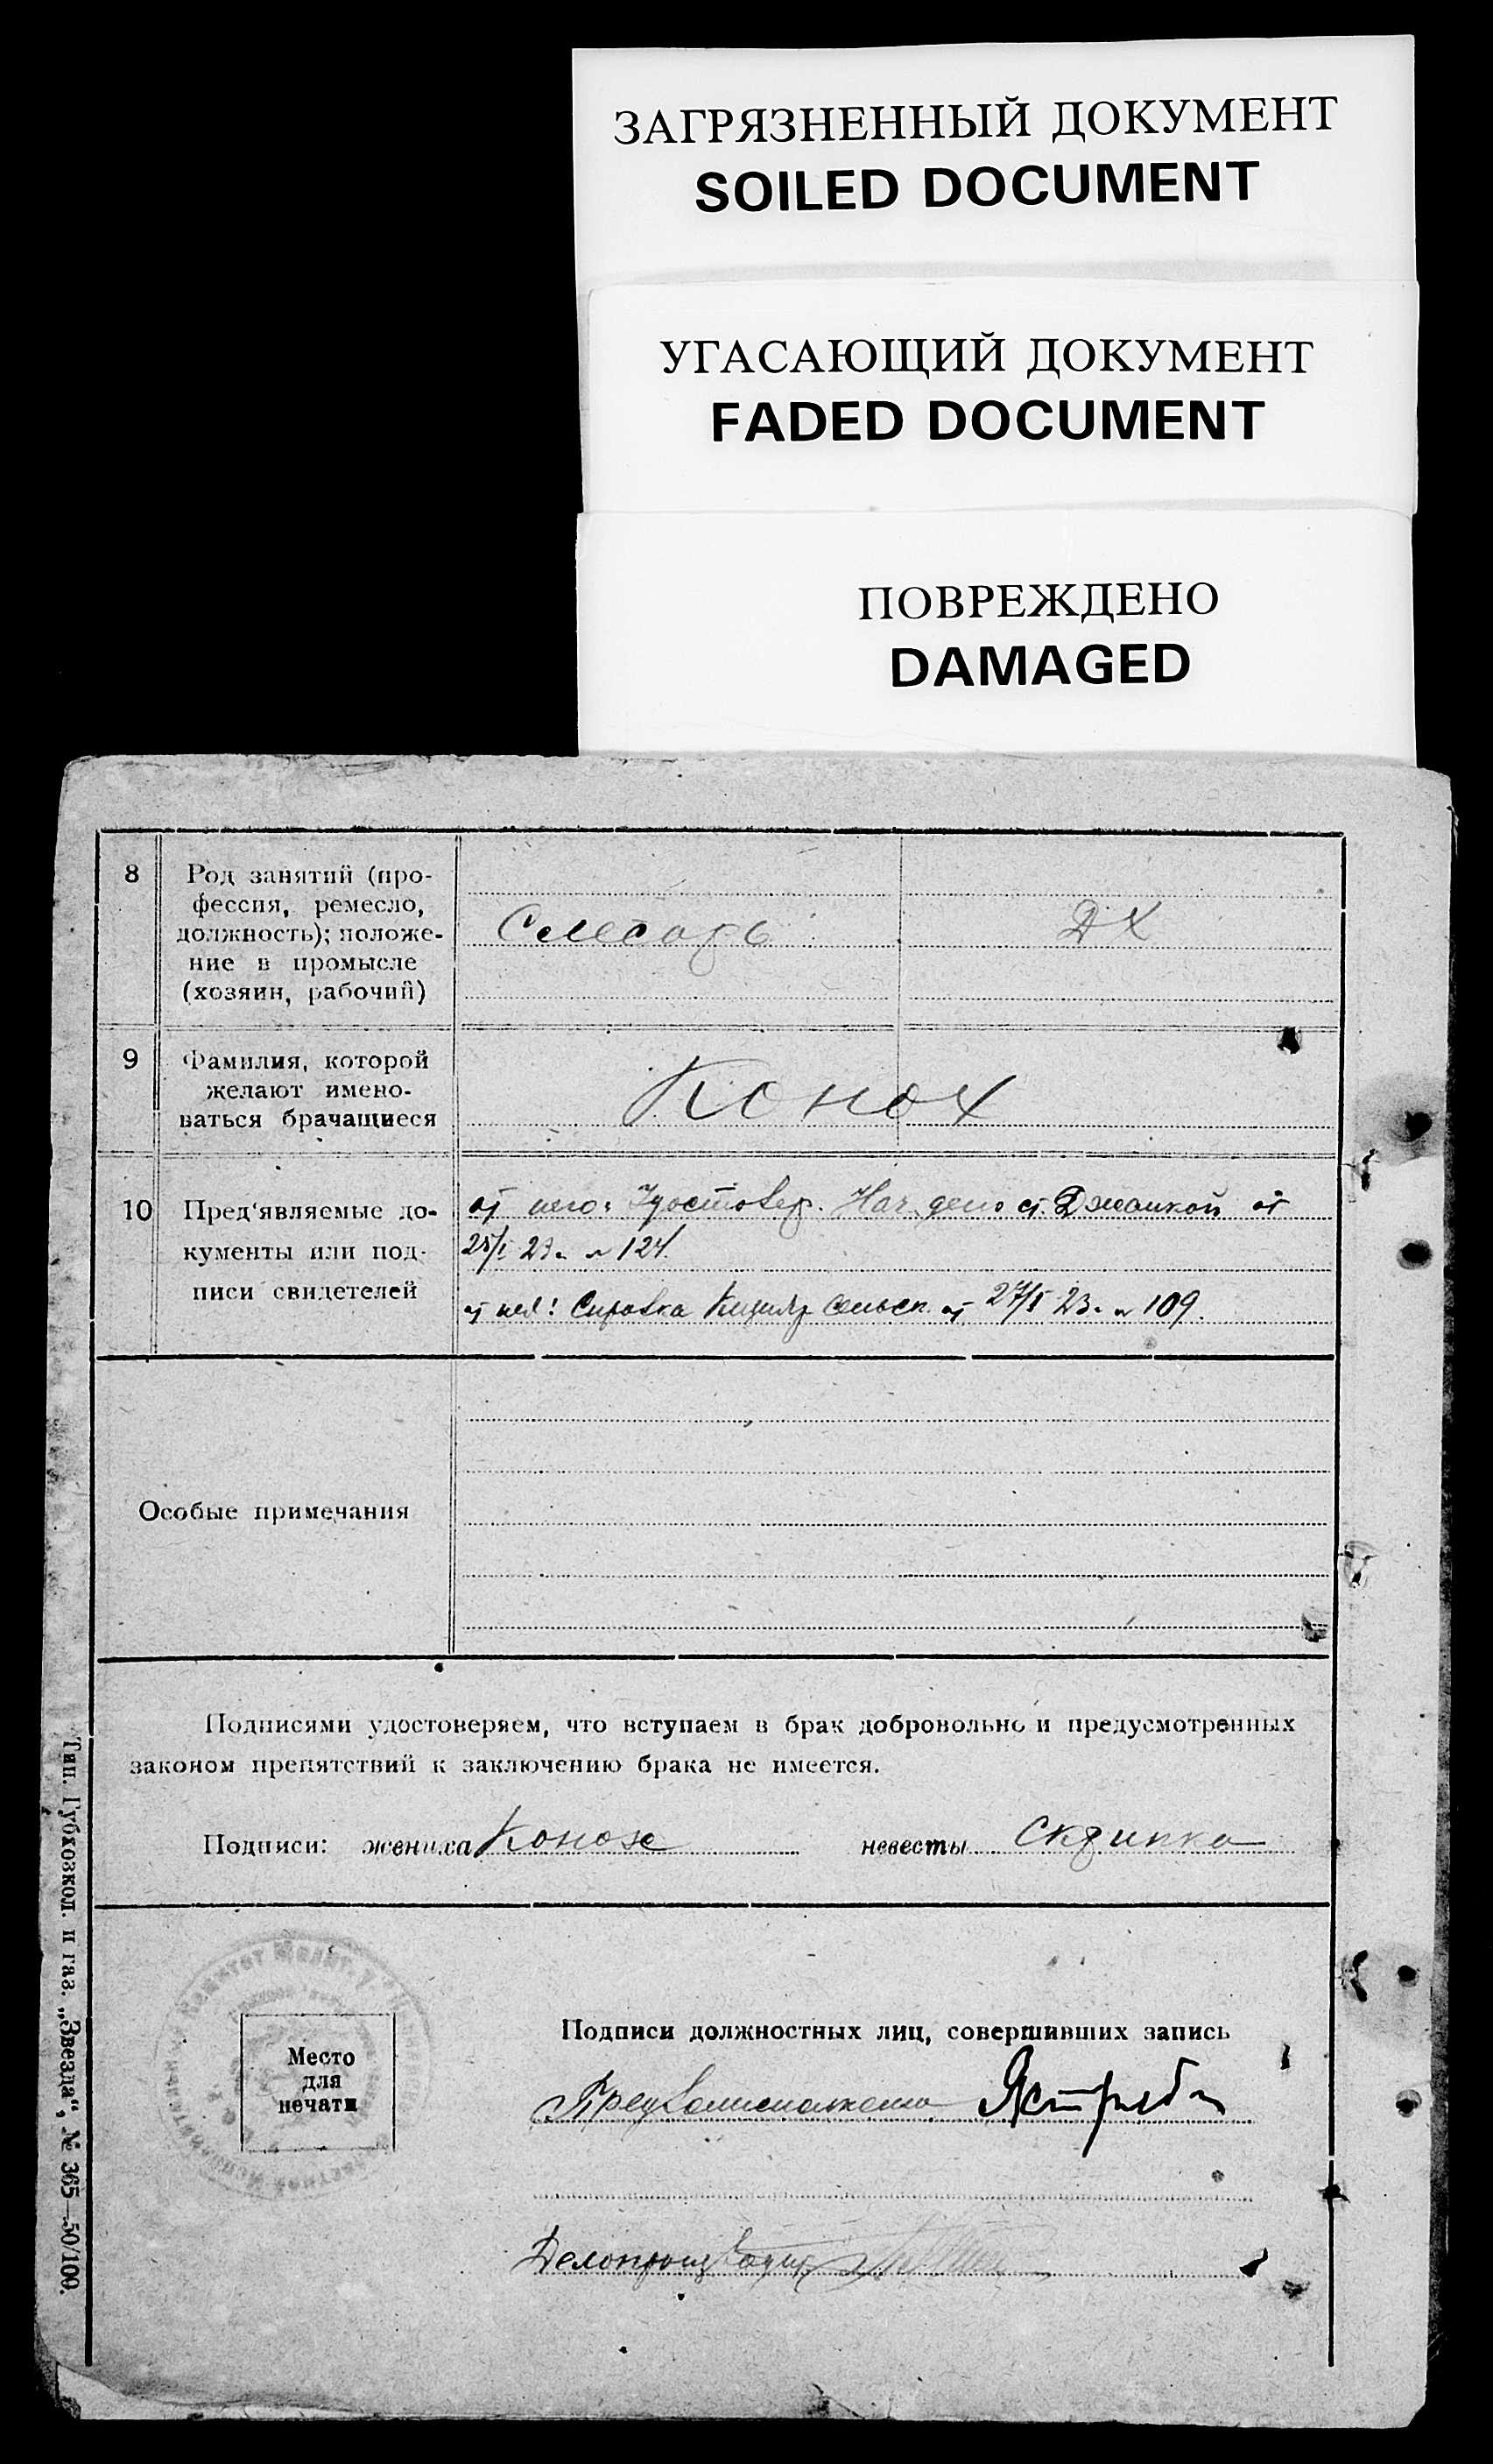 ЗАГРЯЗНЕННЫЙ ДОКУМЕНТ
SOILED DOCUMENT
УГАСАЮЩИЙ ДОКУМЕНТ
FADED DOCUMENT
ПОВРЕЖДЕНО
DAMAGED
8 Род занятий (про-
фессия, ремесло,
должность); положе-
ние в промысле
(хозяин, рабочий)
Слесарь ДХ
9 Фамилия, которой
желают имено-
ваться брачащиеся
Конох
10 Пред'являемые до-
кументы или под-
писи свидетелей
от него: Удостовер. Нач. депо ст. Джанкой от
25/I 23 г. № 124.
от неё: Справка сельсп. от 27/I 23 г. № 109.
Особые примечания
Подписями удостоверяем, что вступаем в брак добровольно и предусмотренных
законом препятствий к заключению брака не имеется.
Подписи: жениха Конох невесты Скрипка
Место
для
печати
Подписи должностных лиц, совершивших запись
Предволисполкома
Делопроизводит
Тип. Губхозкол. и газ. „Звезда“, № 365—50/100.